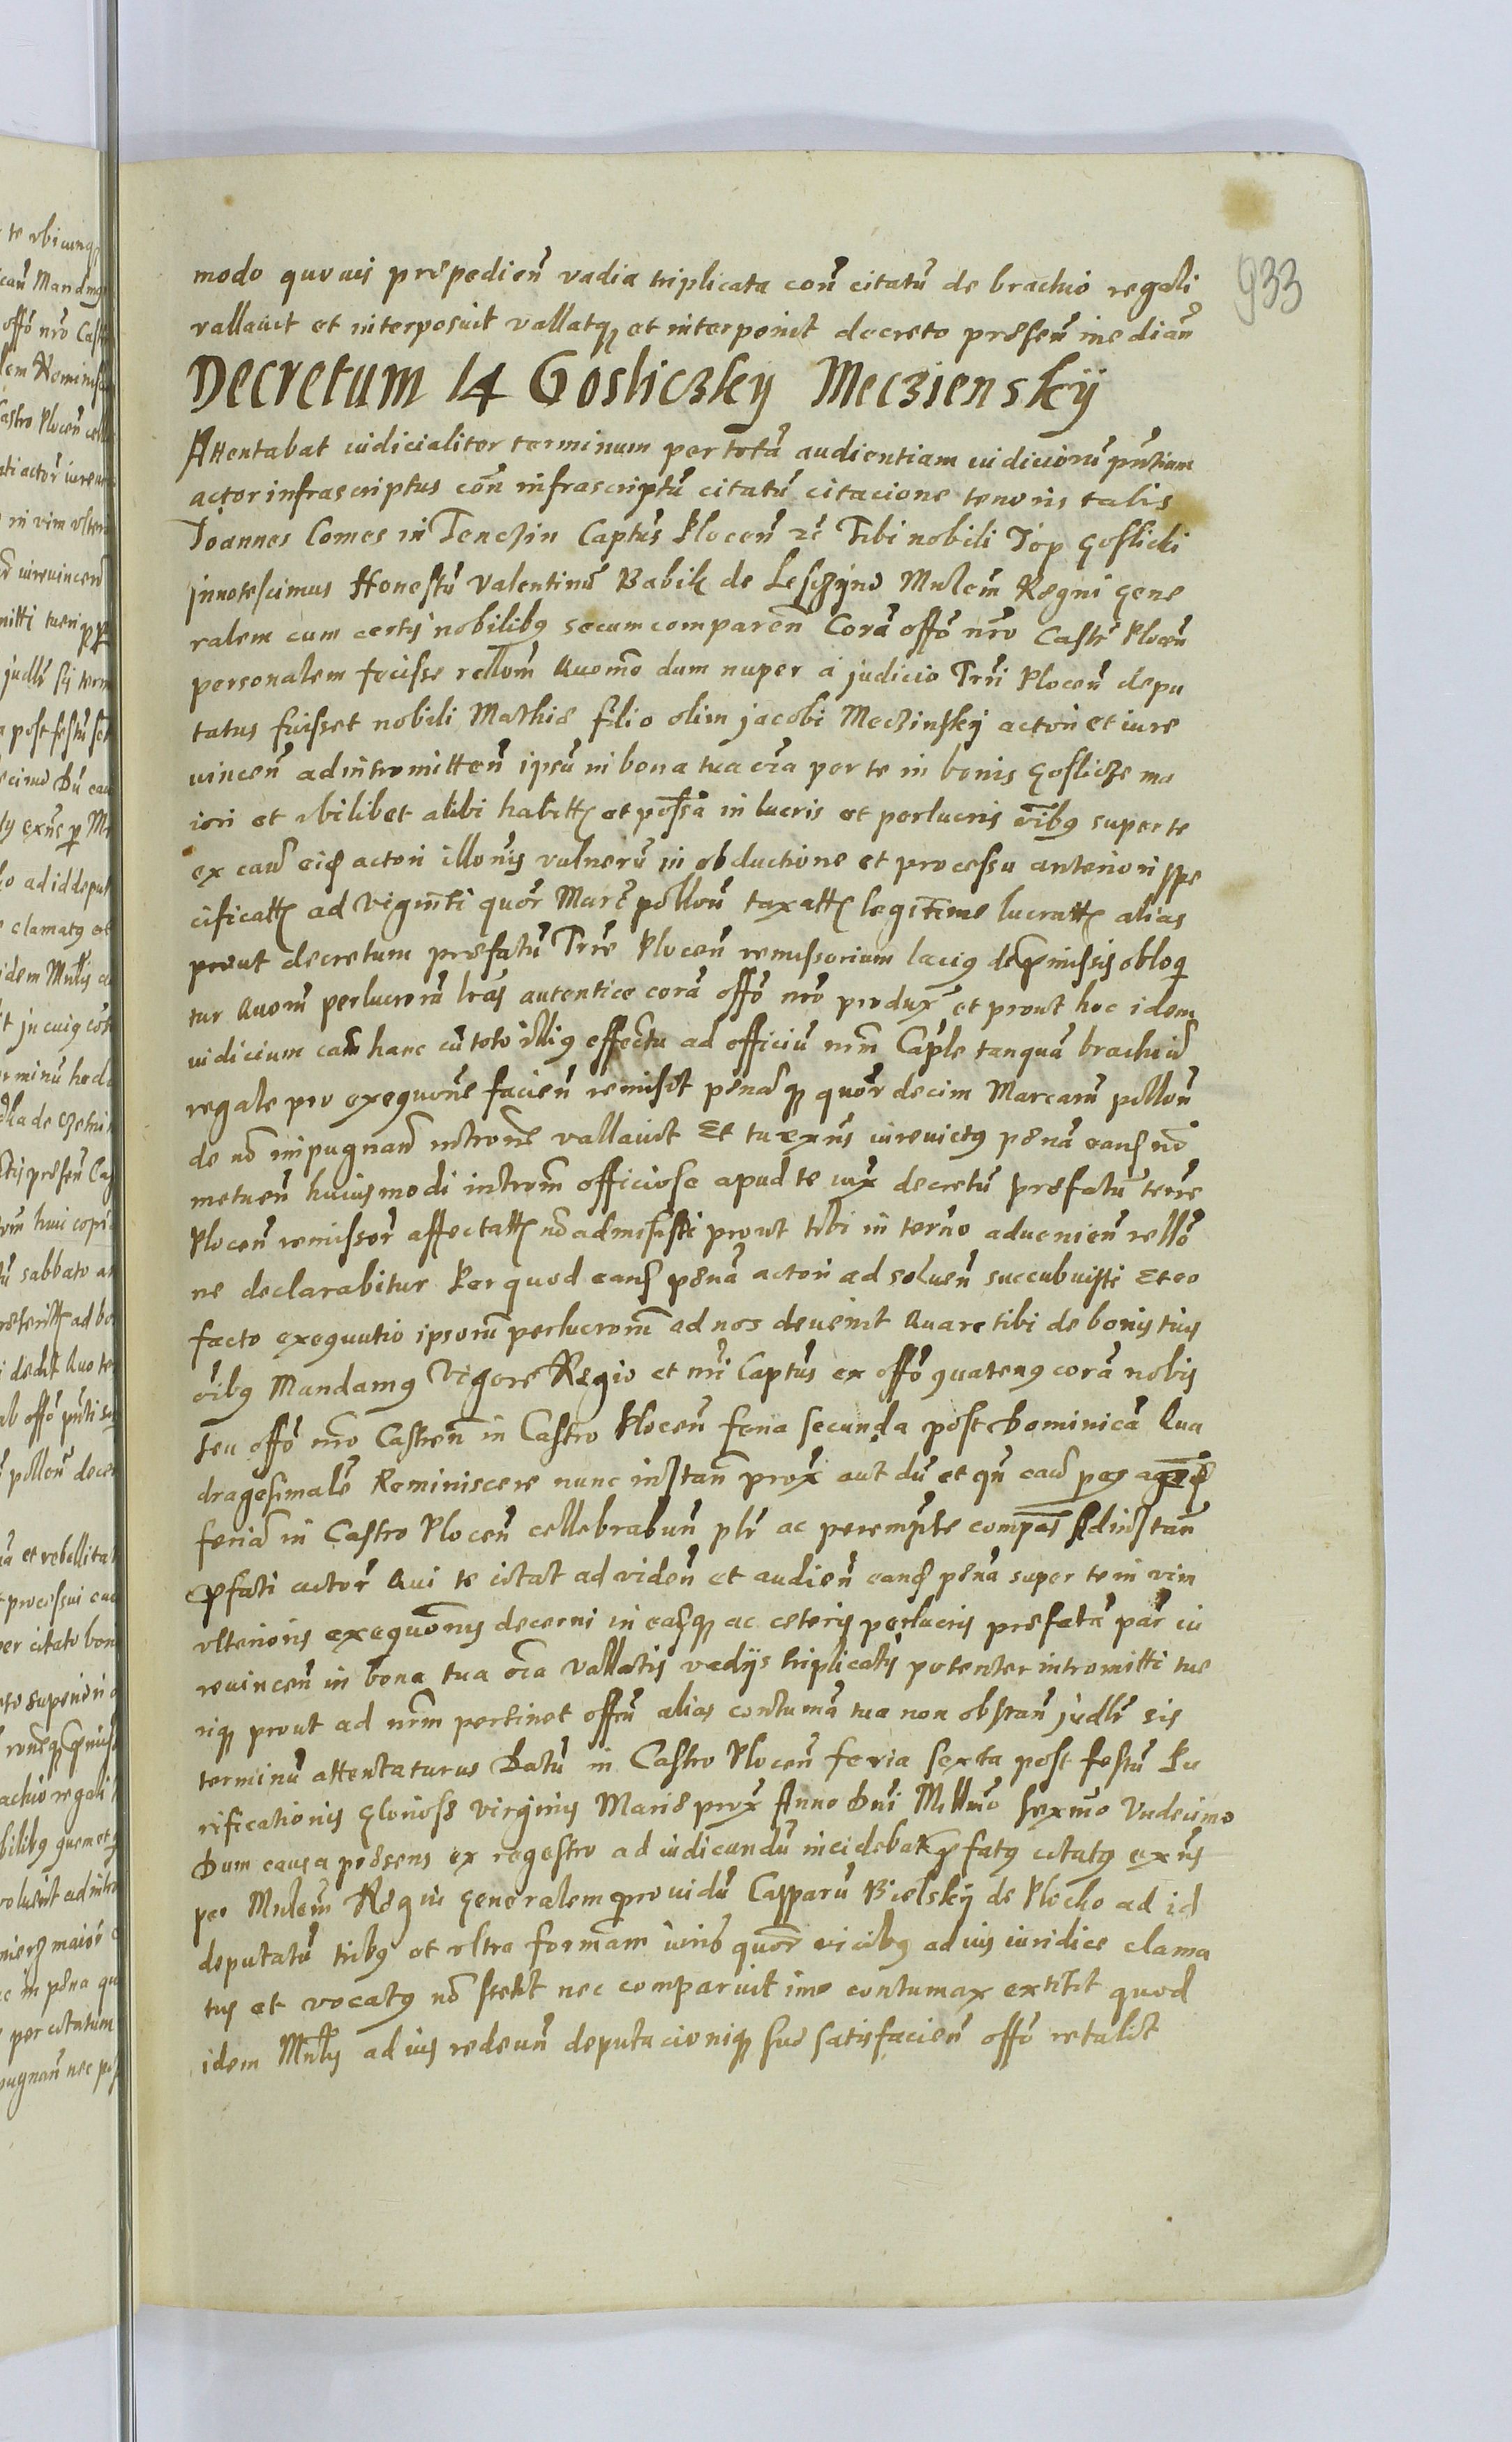 933
modo quouis prępedień vadia triplicata coń citatũ de brachio regali
vallauit et interposuit vallatqꝫ et interponit decreto pręseń mediań
Decretum 14 Gosliczky Mecziensky
Attentabat iudicialiter terminum per totã audientiam iudiciorũ pñtium
actor infrascriptus coñ infrascriptũ citatũ citacione tenoris talis
Joannes Comes in Tenczin Captũs Ploceñ Tibi nobili Jop Goslicki
jnnotescimus Honestũ Valentinũ Babik de Lesczyno Mnlem̃ Regni gene
ralem cum certis nobilibꝰ secum compareñ Corã offõ nrõ Castr̃ Ploceñ
personalem fecisse rellom̃ Quomõ dum nuper a judicio Trr̃i Ploceñ depu
tatus fuisset nobili Mathię filio olim jacobi Meczinsky actori et iure
uinceñ ad intromitteñ ipsũ in bona tua õia per te in bonis Goslicze ma
iori et vbilibet alibi habittꝫ et possã in lucris et perlucris õibꝰ super te
ex cauß eidꝫ actori illonis vulnerũ in obductione et processu anteriori spe
cificattꝫ ad viginti quor̃ Marc̃ polloñ taxattꝫ legittime lucrattꝫ alias
prout decretum pręfatũ Trrę Ploceñ remissorium laciꝰ de p̃missis obloq̃
tur Quorũ perlucrorũ lrãs autentice corã offõ nrõ produx̃ et prout hoc idem
iudicium cauß hanc cũ toto illiꝰ effectu ad officiũ nrm̃ Capl̃e tanquã brachiũ
regale pro exequone facień remisit pęnaqꝫ quor̃ decim Marcarũ polloñ
de nõ impugnañ introñe vallauit Et tu exñs iureuictꝰ pęnã eandꝫ nõ
metueñ huiusmodi introm̃ officiose apud te iux̃ decretũ pręfatũ terrę
Ploceñ remissor̃ affectattꝫ nõ admisisti prout tibi in ter̃no adueniẽn rellõ
ne declarabitur Per quod eandꝫ pęnã actori ad solueñ succubuisti Et eo
facto exequutio ipsorũ perlucrorũ ad nos deuenit Quare tibi de bonis tuis
õibꝰ Mandamꝰ Vigore Regio et nrĩ Captũs ex offõ quatenꝰ corã nobis
seu offõ nrõ Castreñ in Castro Ploceñ feria secunda post Dominicã Qua
dragesimalẽ Reminiscere nunc instañ prox̃ aut dũ et qñ cauß
feriã in Castro Ploceñ cellebrabuñ plr̃ ac perempt̃e compãs Ad instañ
p̃fati actor̃ Qui te citat ad videñ et audieñ eandꝫ pęnã super te in vim
vlterioris exequonis decerni in easqꝫ ac ceteris perlucris pręfatã par̃ iu
reuinceñ in bona tua õia vallatis vadijs triplicatis potenter intromitti tue
riqꝫ prout ad nrm̃ pertinet offm̃ alias contumã tua non obstañ judlr̃ sis
terminũ attentaturus Datũ in Castro Ploceñ feria sexta post festũ Pu
rificationis gloriosę virginis Marię prox̃ Anno Dnĩ Mllm̃o sexm̃o Vndecimo
Dum causa pręsens ex regestro ad iudicandũ incidebat p̃fatꝰ citatꝰ exñs
per Mnlem̃ Regni generalem prouidũ Casparũ Bielsky de Plocko ad id
deputatũ tribꝰ et vltra formam iuris quor̃ vicibꝰ ad ius iuridice clama
tus et vocatꝰ nõ stetit nec comparuit imo contumax extitit quod
idem Mnlis ad ius redeuñ deputacioniqꝫ suę satisfacieñ offõ retulit